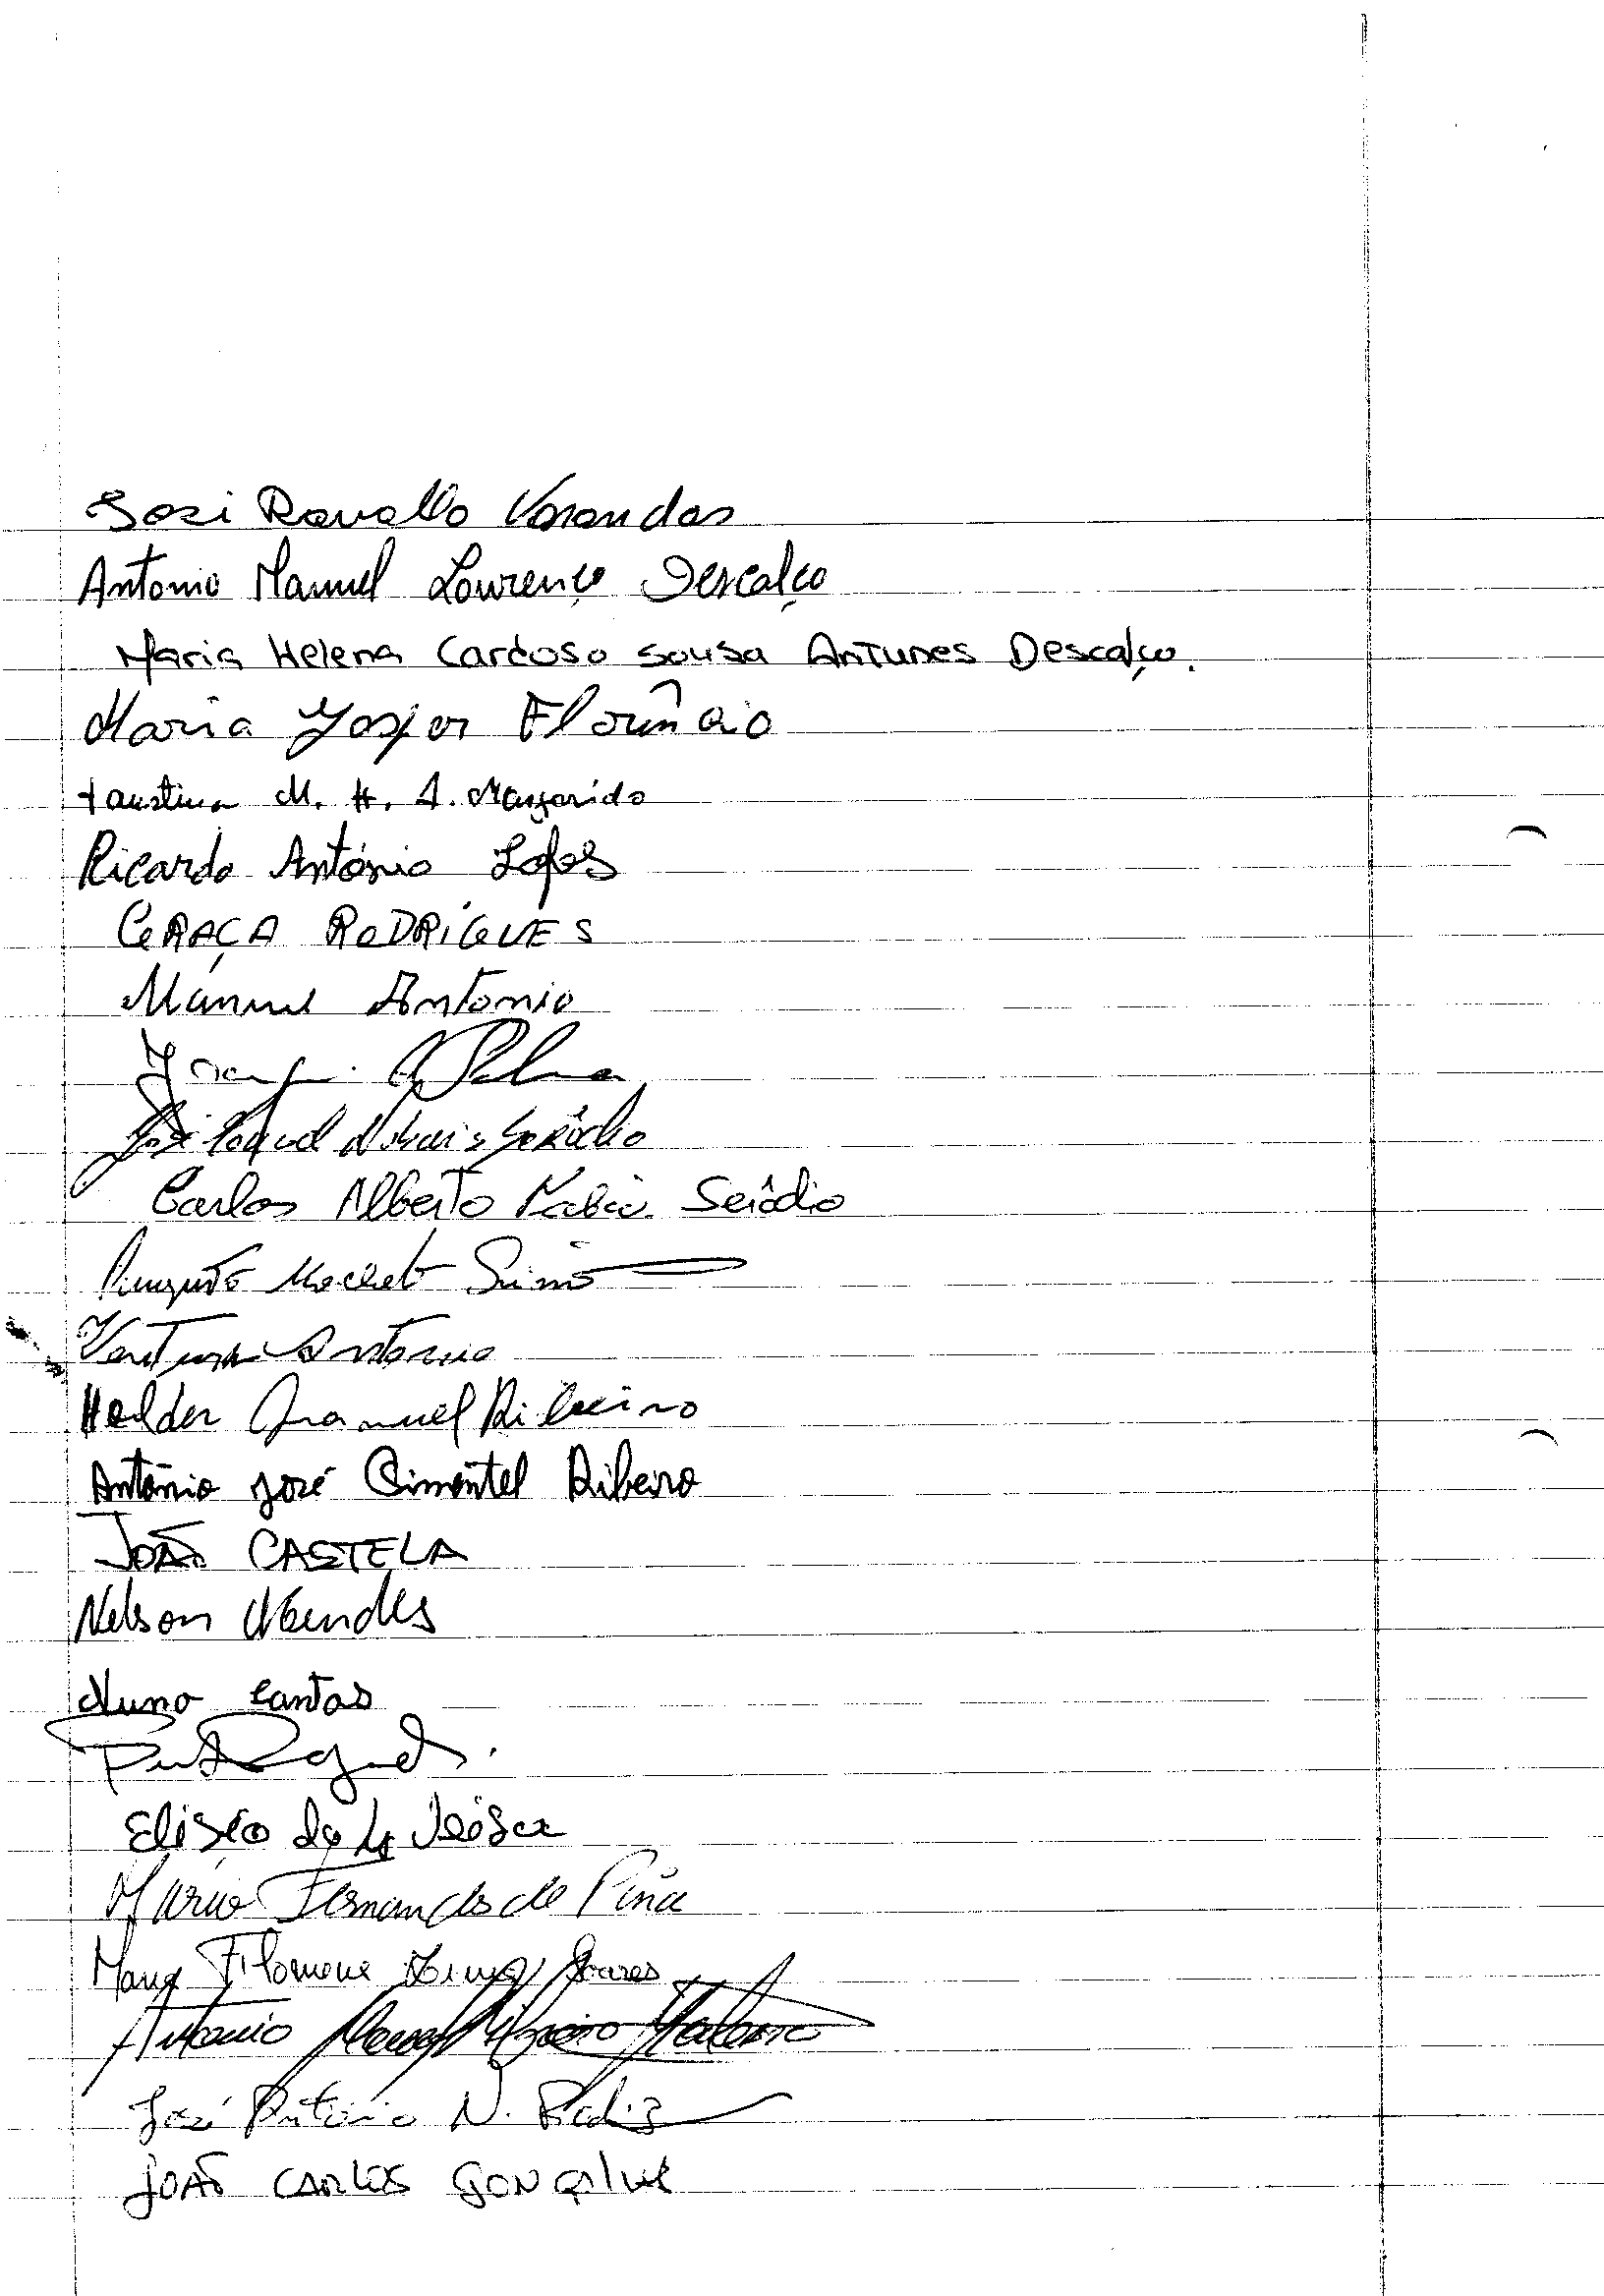 José Ravallo Varandas
Antonio Manuel Lourenço Descalço
Maria Helena Cardoso Sousa Antunes Descalço.
Maria Gaspar Florêncio
Faustina M. H. A. Margarido
Ricardo António Lopes
GRAÇA RODRIGUES
Manuel Antonio
Palma
José Serôdio
Carlos Alberto Serôdio
Augusto Machado Simão
Ventura Antonio
Helder Manuel Ribeiro
António José Pimentel Ribeiro
JOÃO CASTELA
Nelson Mendes
Nuno Santos
Eliséo
Mário Fernandes de Pina
Maria Filomena Soares
Antonio
José António N.
JOÃO CARLOS GONÇALVES